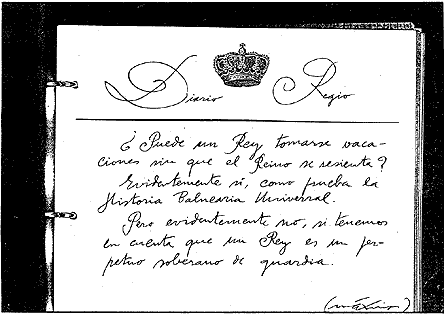 Diario Regio
¿Puede un Rey tomarse vaca-
ciones sin que el Reino se resienta?
Evidentemente sí, como prueba la
Historia Balnearia Universal.
Pero evidentemente no, si tenemos
en cuenta que un Rey es un per-
petuo soberano de guardia.
(máximo)